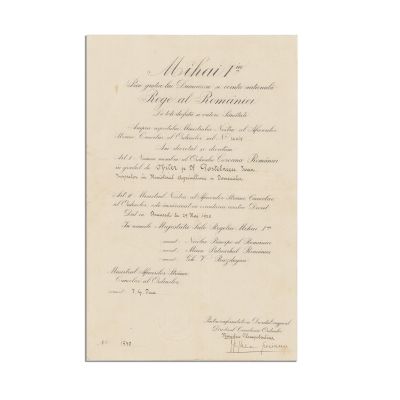 Mihai Iiu
Prin grația lui Dumnezeu și voința națională
Rege al României
La toți de față și viitori Sănătate
Asupra raportului Ministrului Nostru al Afacerilor
Străine Cancelar al Ordinelor sub No.
Am decretat și decretăm
Art. I Numim membru al Ordinului Coroana României
în gradul de Ofițer pe Dl Ioan
Inspector în Ministerul Agriculturii și Domeniilor
Art. II Ministrul Nostru al Afacerilor Străine Cancelar
al Ordinelor, este însărcinat cu executarea acestui Decret
Dat în București la 29 Mai 1928
În numele Majestății Sale Regelui Mihai Iiu
semnat Nicolae Principe al României
semnat Miron Patriarhul României
semnat Gh. V. Buzdugan
Ministrul Afacerilor Străine
Cancelar al Ordinelor
semnat I. G. Duca
Pentru conformitatea Decretului original
Directorul Cancelariei Ordinelor
No.